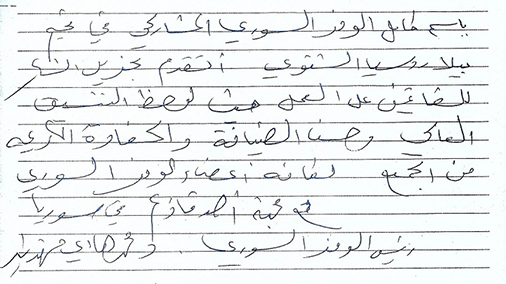 باسم كامل الوفد السوري المشارك في مخيم
بيلاروسيا الشتوي أتقدم بجزيل الشكر
للقائمين على العمل حيث لوحظ التنسيق
العالي وحسن الضيافة والحفاوة الكريمة
من الجميع لكافة أعضاء الوفد السوري
مع محبة أصدقاؤكم في سوريا
رئيس الوفد السوري